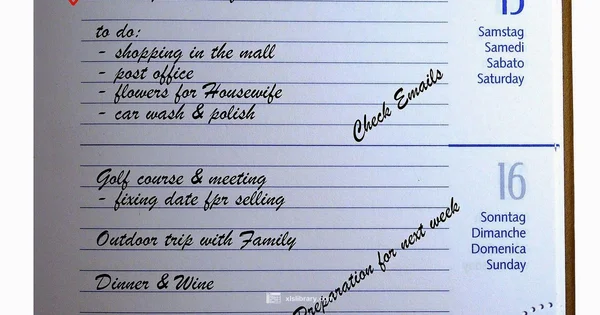 15
to do:
- shopping in the mall
- post office
- flowers for Housewife
- car wash & polish
Check Emails
Samstag
Samedi
Sabato
Saturday
Golf course & meeting
- fixing date fpr selling
Outdoor trip with Family
Dinner & Wine
Preparation for next week
16
Sonntag
Dimanche
Domenica
Sunday